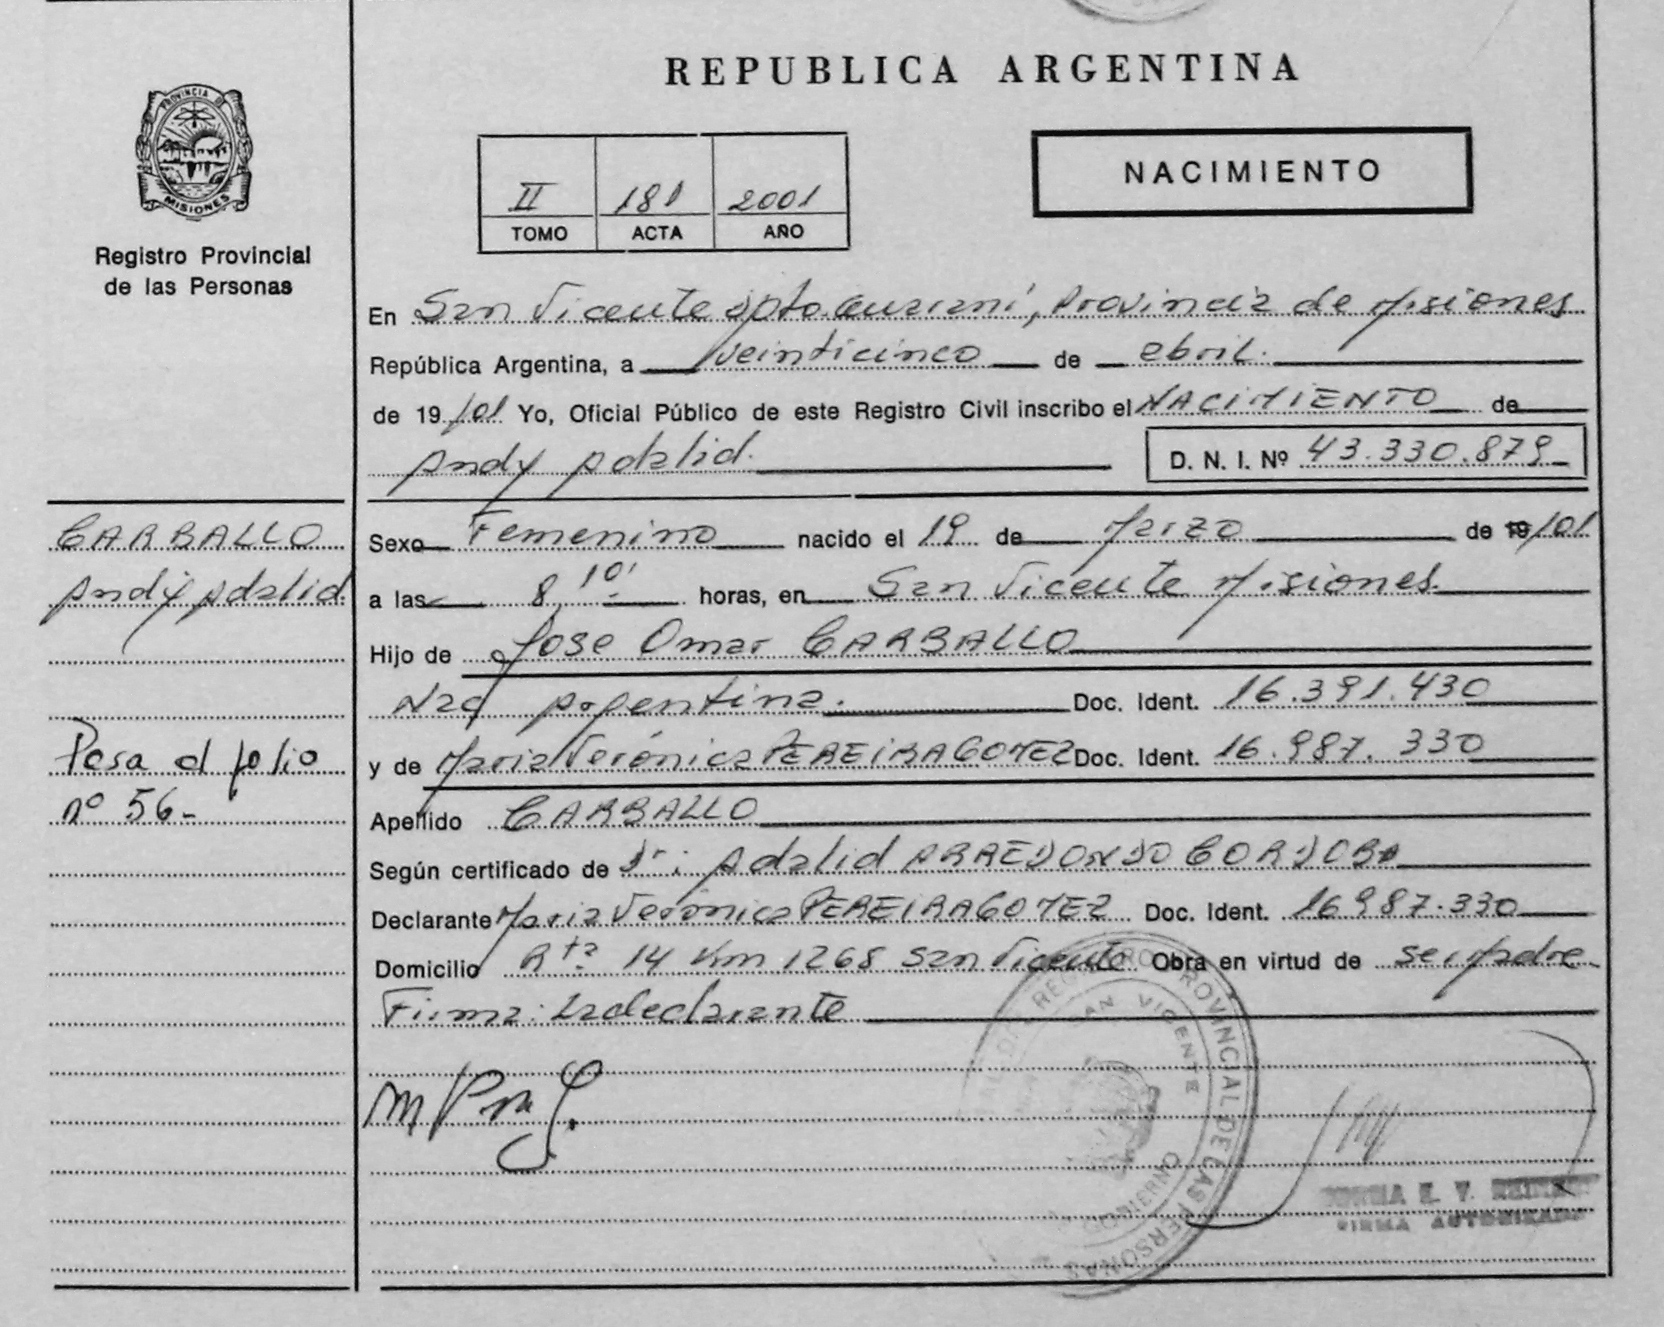 REPUBLICA ARGENTINA
PROVINCIA DE
MISIONES
Registro Provincial
de las Personas
II 181 2001
TOMO ACTA AÑO
NACIMIENTO
En San Vicente Dpto. Guaraní, Provincia de Misiones
República Argentina, a veinticinco de abril.
de 19/01 Yo, Oficial Público de este Registro Civil inscribo el NACIMIENTO de
Andy Adalid.
D. N. I. Nº 43.330.879
CARBALLO
Andy Adalid
Pasa al folio
nº 56-
Sexo Femenino nacido el 19 de Marzo de 19/01
a las 8,10' horas, en San Vicente Misiones.
Hijo de José Omar CARBALLO
Nac Argentina. Doc. Ident. 16.391.430
y de Maria Verónica PEREIRA GOMEZ Doc. Ident. 16.987.330
Apellido CARBALLO
Según certificado de Dr: Adalid ARREDONDO CORDOBA
Declarante Maria Verónica PEREIRA GOMEZ Doc. Ident. 16987.330
Domicilio Rta 14 Km 1268 San Vicente Obra en virtud de ser Madre
Firma: La declarante
REGISTRO PROVINCIAL DE LAS PERSONAS
SAN VICENTE
GOBIERNO
E. V.
FIRMA AUTORIZADA